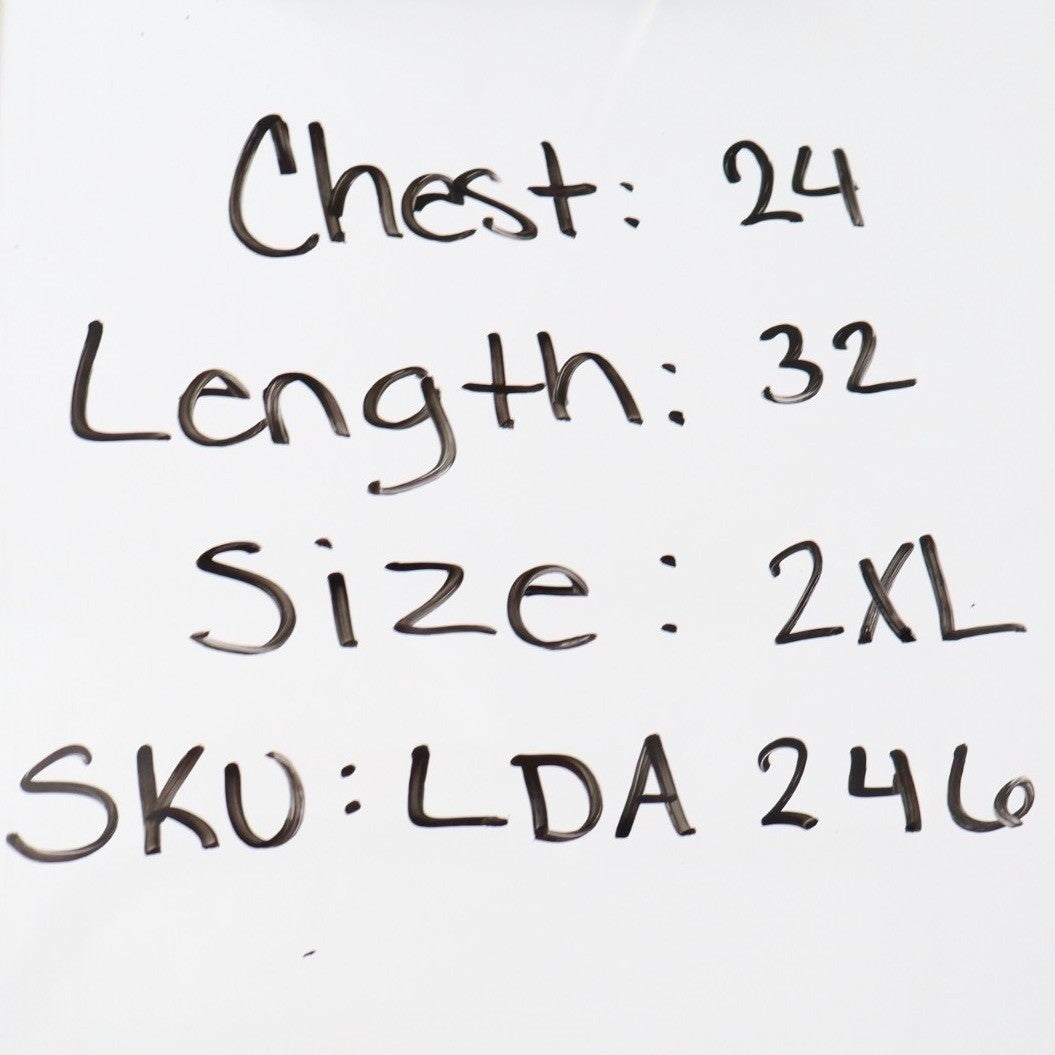 Chest: 24
Length: 32
Size: 2XL
SKU: LDA 246